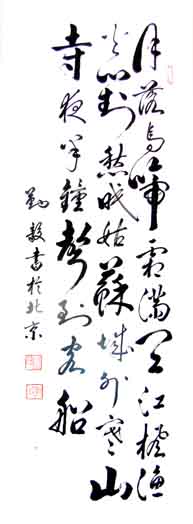 月落烏啼霜滿天江楓漁
火對愁眠姑蘇城外寒山
寺夜半鐘聲到客船
書於北京